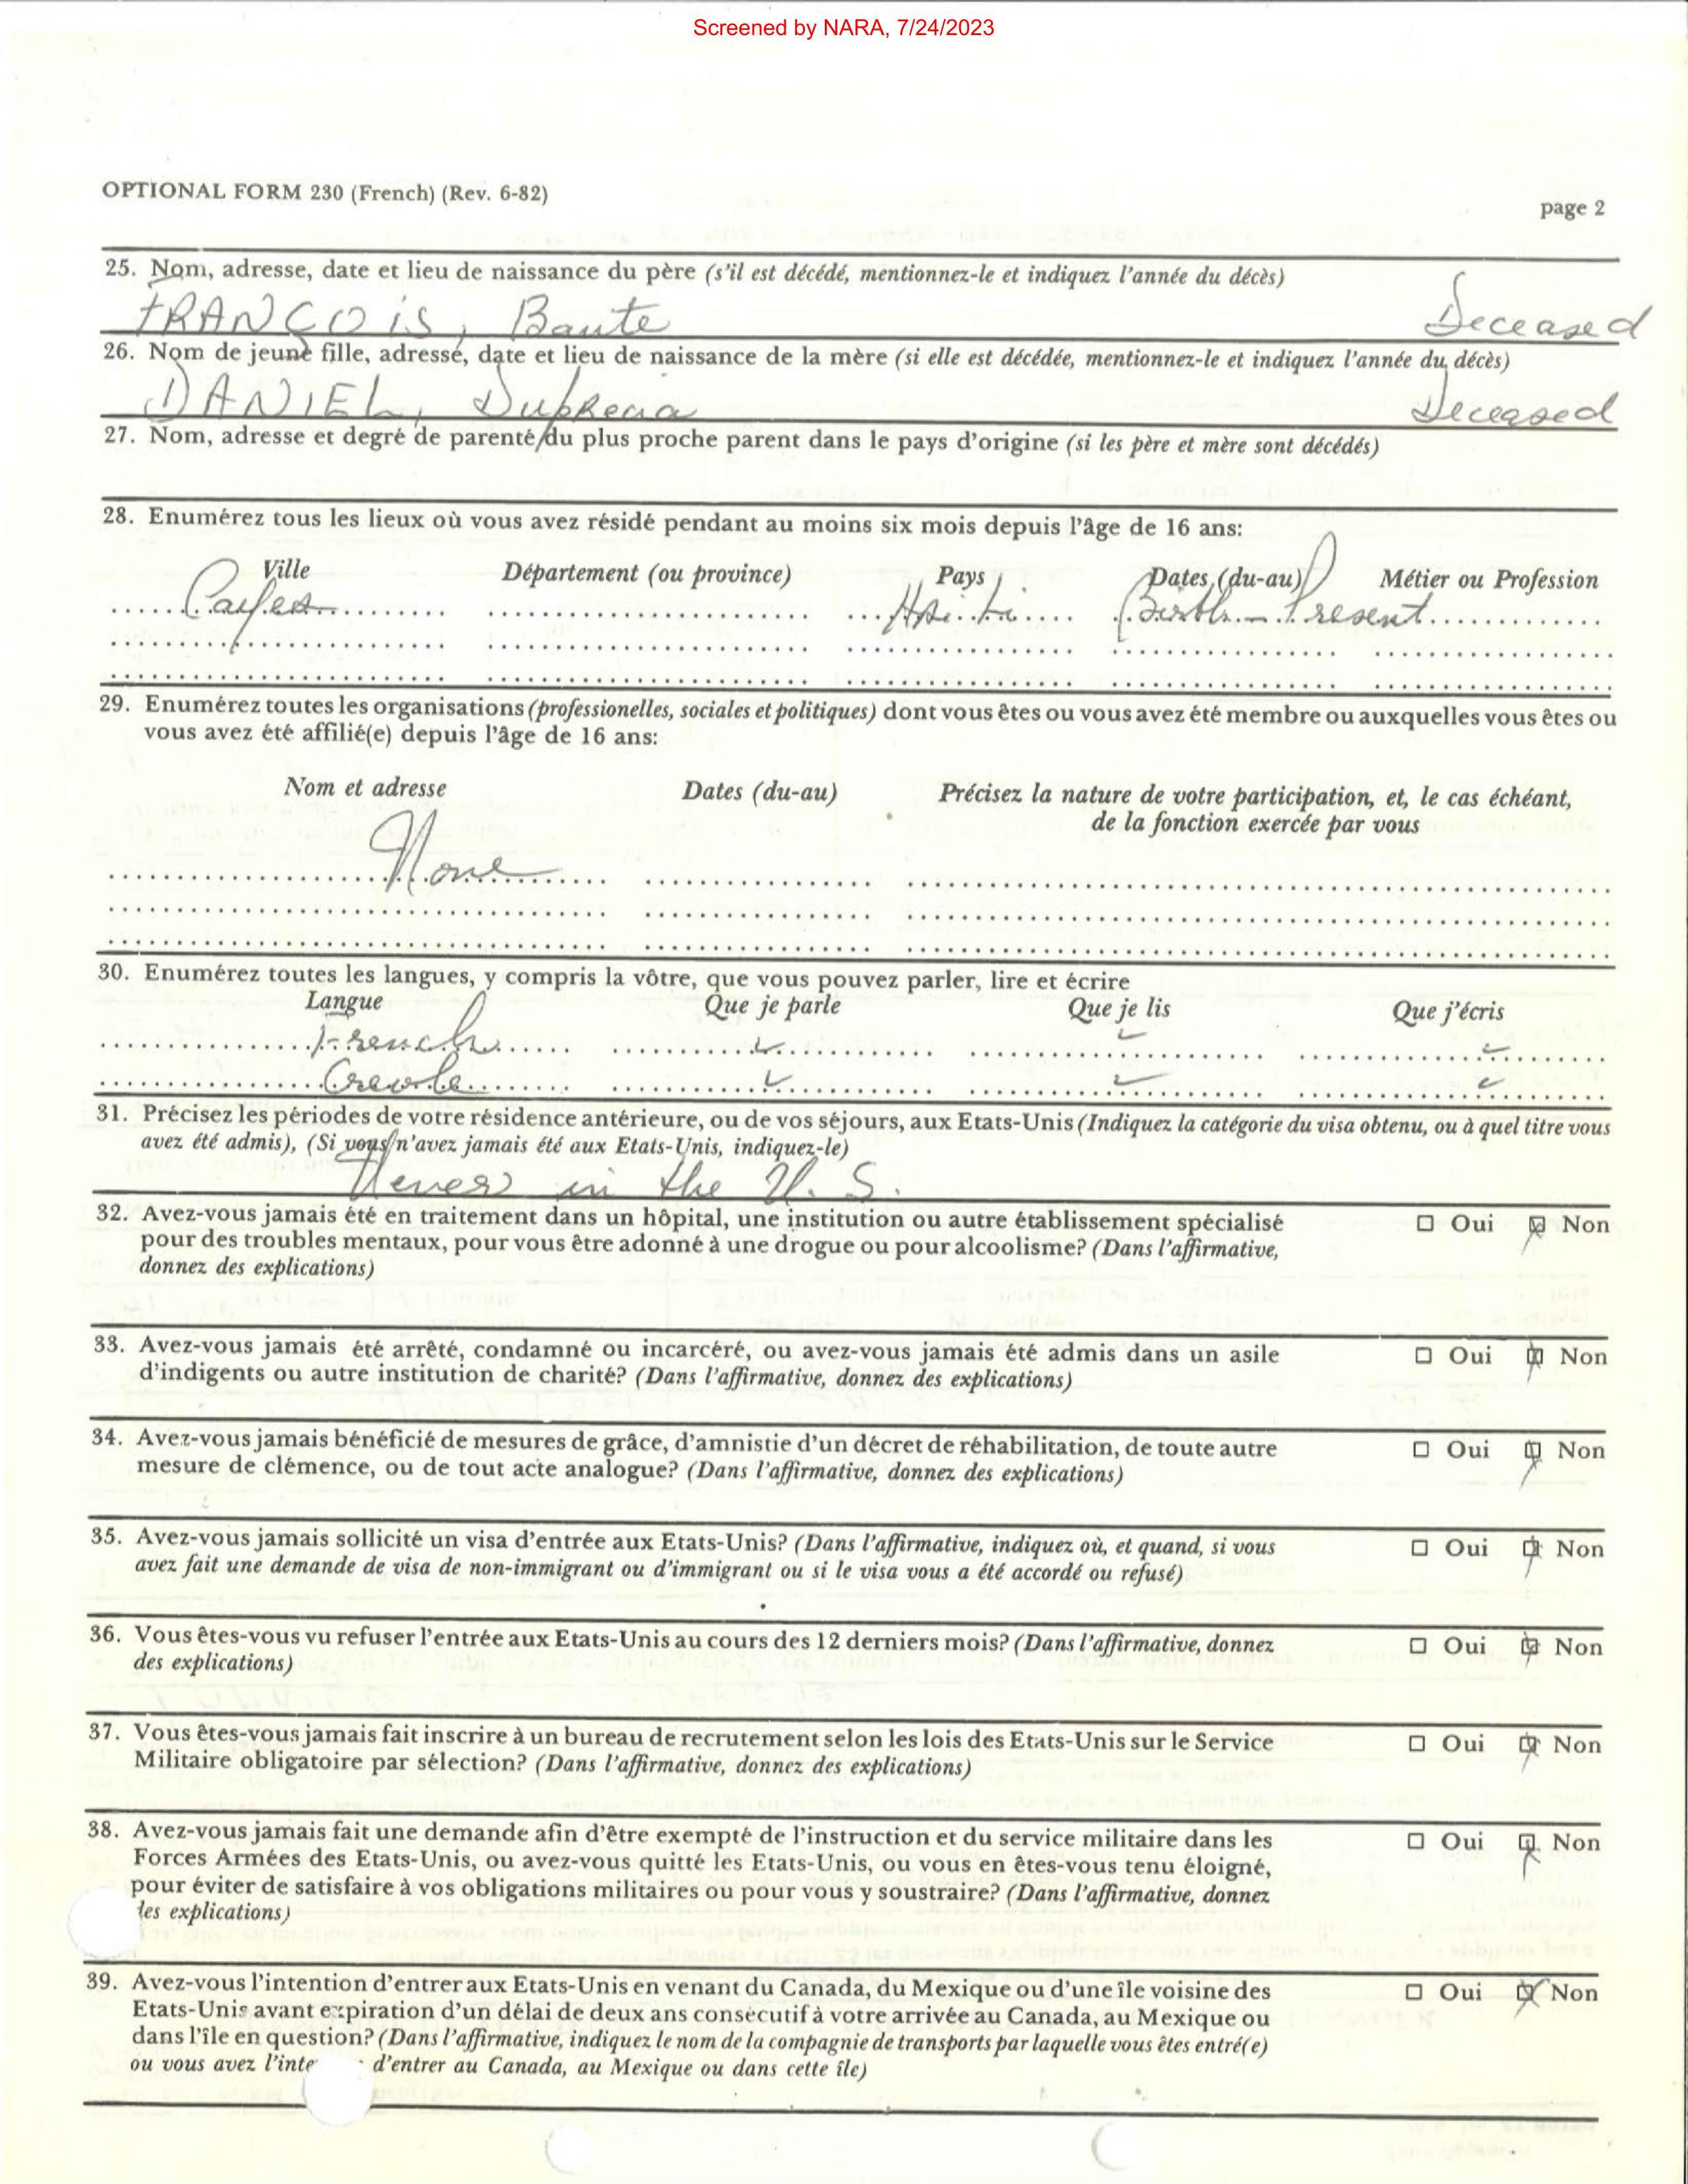 Screened by NARA, 7/24/2023
OPTIONAL FORM 230 (French) (Rev. 6-82)
page 2
25. Nom, adresse, date et lieu de naissance du père (s'il est décédé, mentionnez-le et indiquez l'année du décès)
FRANÇOIS, Baute Deceased
26. Nom de jeune fille, adresse, date et lieu de naissance de la mère (si elle est décédée, mentionnez-le et indiquez l'année du décès)
DANIEL, Deceased
27. Nom, adresse et degré de parenté du plus proche parent dans le pays d'origine (si les père et mère sont décédés)
28. Enumérez tous les lieux où vous avez résidé pendant au moins six mois depuis l'âge de 16 ans:
Ville Département (ou province) Pays Dates (du-au) Métier ou Profession
Cayes Haiti Birth - Present
29. Enumérez toutes les organisations (professionelles, sociales et politiques) dont vous êtes ou vous avez été membre ou auxquelles vous êtes ou
vous avez été affilié(e) depuis l'âge de 16 ans:
Nom et adresse Dates (du-au) Précisez la nature de votre participation, et, le cas échéant,
de la fonction exercée par vous
None
30. Enumérez toutes les langues, y compris la vôtre, que vous pouvez parler, lire et écrire
Langue Que je parle Que je lis Que j'écris
French ✓ ✓ ✓
Creole ✓ ✓ ✓
31. Précisez les périodes de votre résidence antérieure, ou de vos séjours, aux Etats-Unis (Indiquez la catégorie du visa obtenu, ou à quel titre vous
avez été admis), (Si vous n'avez jamais été aux Etats-Unis, indiquez-le)
Never in the U. S.
32. Avez-vous jamais été en traitement dans un hôpital, une institution ou autre établissement spécialisé ☐ Oui ☒ Non
pour des troubles mentaux, pour vous être adonné à une drogue ou pour alcoolisme? (Dans l'affirmative,
donnez des explications)
33. Avez-vous jamais été arrêté, condamné ou incarcéré, ou avez-vous jamais été admis dans un asile ☐ Oui ☒ Non
d'indigents ou autre institution de charité? (Dans l'affirmative, donnez des explications)
34. Avez-vous jamais bénéficié de mesures de grâce, d'amnistie d'un décret de réhabilitation, de toute autre ☐ Oui ☒ Non
mesure de clémence, ou de tout acte analogue? (Dans l'affirmative, donnez des explications)
35. Avez-vous jamais sollicité un visa d'entrée aux Etats-Unis? (Dans l'affirmative, indiquez où, et quand, si vous ☐ Oui ☒ Non
avez fait une demande de visa de non-immigrant ou d'immigrant ou si le visa vous a été accordé ou refusé)
36. Vous êtes-vous vu refuser l'entrée aux Etats-Unis au cours des 12 derniers mois? (Dans l'affirmative, donnez ☐ Oui ☒ Non
des explications)
37. Vous êtes-vous jamais fait inscrire à un bureau de recrutement selon les lois des Etats-Unis sur le Service ☐ Oui ☒ Non
Militaire obligatoire par sélection? (Dans l'affirmative, donnez des explications)
38. Avez-vous jamais fait une demande afin d'être exempté de l'instruction et du service militaire dans les ☐ Oui ☒ Non
Forces Armées des Etats-Unis, ou avez-vous quitté les Etats-Unis, ou vous en êtes-vous tenu éloigné,
pour éviter de satisfaire à vos obligations militaires ou pour vous y soustraire? (Dans l'affirmative, donnez
des explications)
39. Avez-vous l'intention d'entrer aux Etats-Unis en venant du Canada, du Mexique ou d'une île voisine des ☐ Oui ☒ Non
Etats-Unis avant expiration d'un délai de deux ans consécutif à votre arrivée au Canada, au Mexique ou
dans l'île en question? (Dans l'affirmative, indiquez le nom de la compagnie de transports par laquelle vous êtes entré(e)
ou vous avez l'inte d'entrer au Canada, au Mexique ou dans cette île)